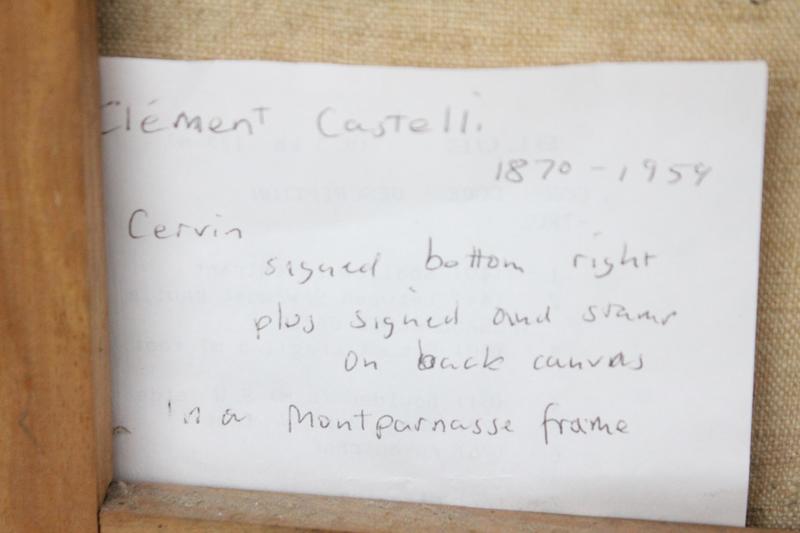 Clément Castelli
1870 - 1959
Cervin
signed bottom right
plus signed and stamp
on back canvas
In a Montparnasse frame